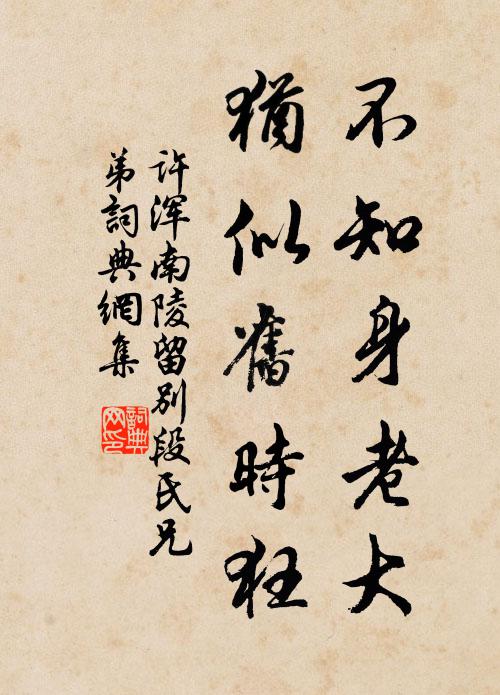 不知身老大
猶似舊時狂
许浑南陵留別段氏兄
弟詞典網集
詞典
网印